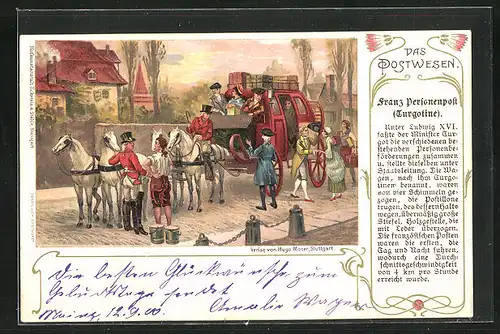 DAS
POSTWESEN.
Franz Personenpost
(Turgotine).
Unter Ludwig XVI.
faßte der Minister Tur-
got die verschiedenen be-
stehenden Personenbe-
förderungen zusammen
u. stellte dieselben unter
Staatsleitung. Die Wa-
gen, nach ihm Turgo-
tinen benannt, waren
von vier Schimmeln ge-
zogen, die Postillone
trugen, des bessern Halts
wegen, übermäßig große
Stiefel. Holzgestelle, die
mit Leder überzogen.
Die französischen Posten
waren die ersten, die
Tag und Nacht fuhren,
wodurch eine Durch-
schnittsgeschwindigkeit
von 4 km pro Stunde
erreicht wurde.
Verlag von Hugo Moser, Stuttgart
Die besten Glückwünsche zum
Geburtstage sendet
Amalie Wagner
Mainz 12.9.00.